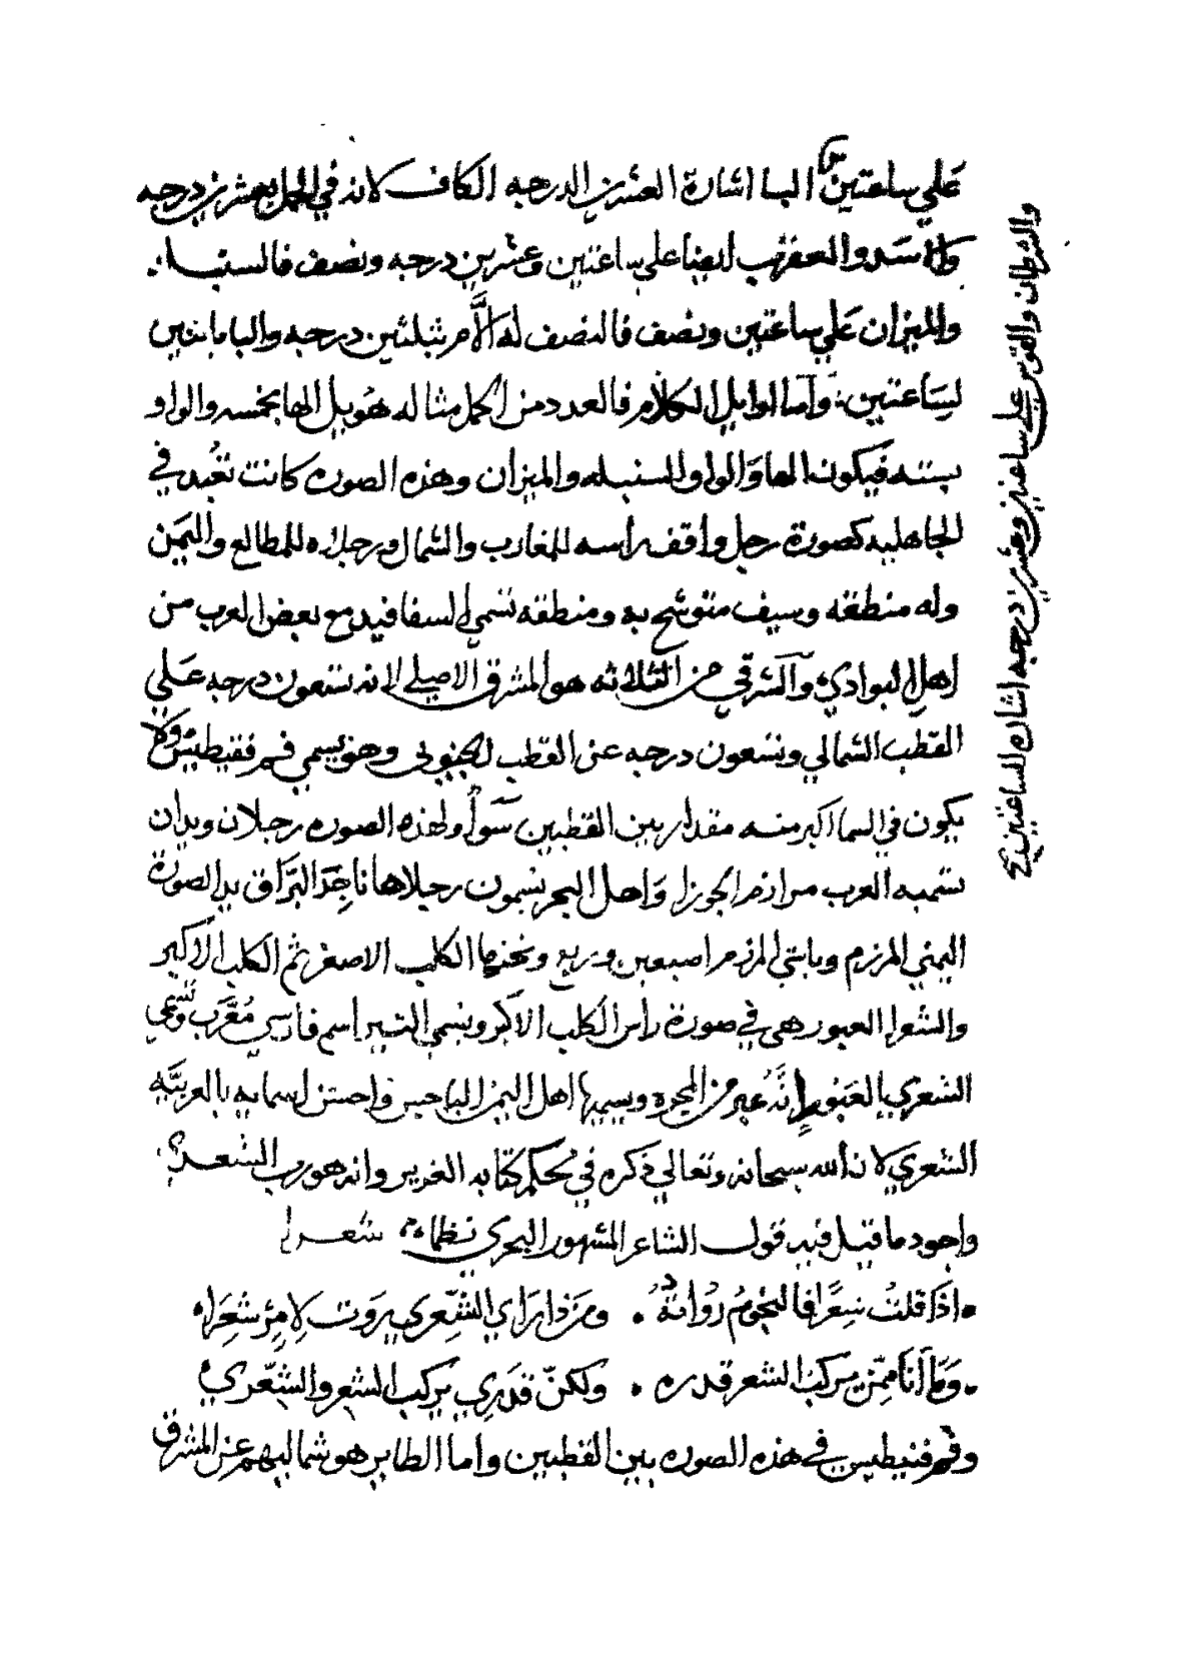 علي ساعتين البا اشارة العشرين الدرجه الكاف لانه في الجمل بعشرين درجه
والاسد والعقرب ايضا علي ساعتين وعشرين درجه ونصف فالسنبله
والميزان علي ساعتين ونصف فالنصف له الأم بثلثين درجه والبا باثنين
لساعتين وأما اوايل الكلام فالعدد من الجمل مثاله هو يل الها بخمسه والواو
بسته فيكون الها والواو السنبله والميزان وهذه الصوره كانت تعبد في
الجاهليه كصورة رجل واقف راسه للمغارب والشمال ورجلاه للمطالع واليمن
وله منطقه وسيف متوشح به ومنطقه تسمي السفافيد مع بعض العرب من
اهل البوادي والشرقي من الثلاثه هو المشرق الاصلي لانه تسعون درجه علي
القطب الشمالي وتسعون درجه عن القطب الجنوبي وهو يسمي فم فقيطيس ولا
يكون في السما اكبر منه مقدار بين القطبين سوآ ولهذه الصوره رجلان ويدان
تسميه العرب مرازم الجوزا واهل البحر يسمون رجلاها ناجذ البراق يد الصورة
اليمني المرزم وبابتي المرزم اصبعين وربع وتحتها الكلب الاصغر ثم الكلب الاكبر
والشعرا العبور هي في صورة راس الكلب الاكبر ويسمي التير اسم فارسي معرب وتسمي
الشعري العبور إنه عبر من المجره ويسميها اهل اليمن الباجس واحسن اسمايه بالعربيه
الشعري لان الله سبحانه وتعالي ذكره في محكم كتابه العزيز وانه هو رب الشعري
واجود ما قيل فيه قول الشاعر المشهور البحري نظما شعرا
اذا قلت شعرا فالنجوم رواته . ومن ذا راي الشعري يروت لامرئ شعرا
وما أنا ممن يركب الشعر قدره . ولكن قدري يركب الشعر والشعري
وفم فنيطيس في هذه الصوره بين القطبين واما الطاير هو شماليهم عن المشرق
والسرطان والقوس علي ساعتين وعشرين درجه اشاره الساعتين صح